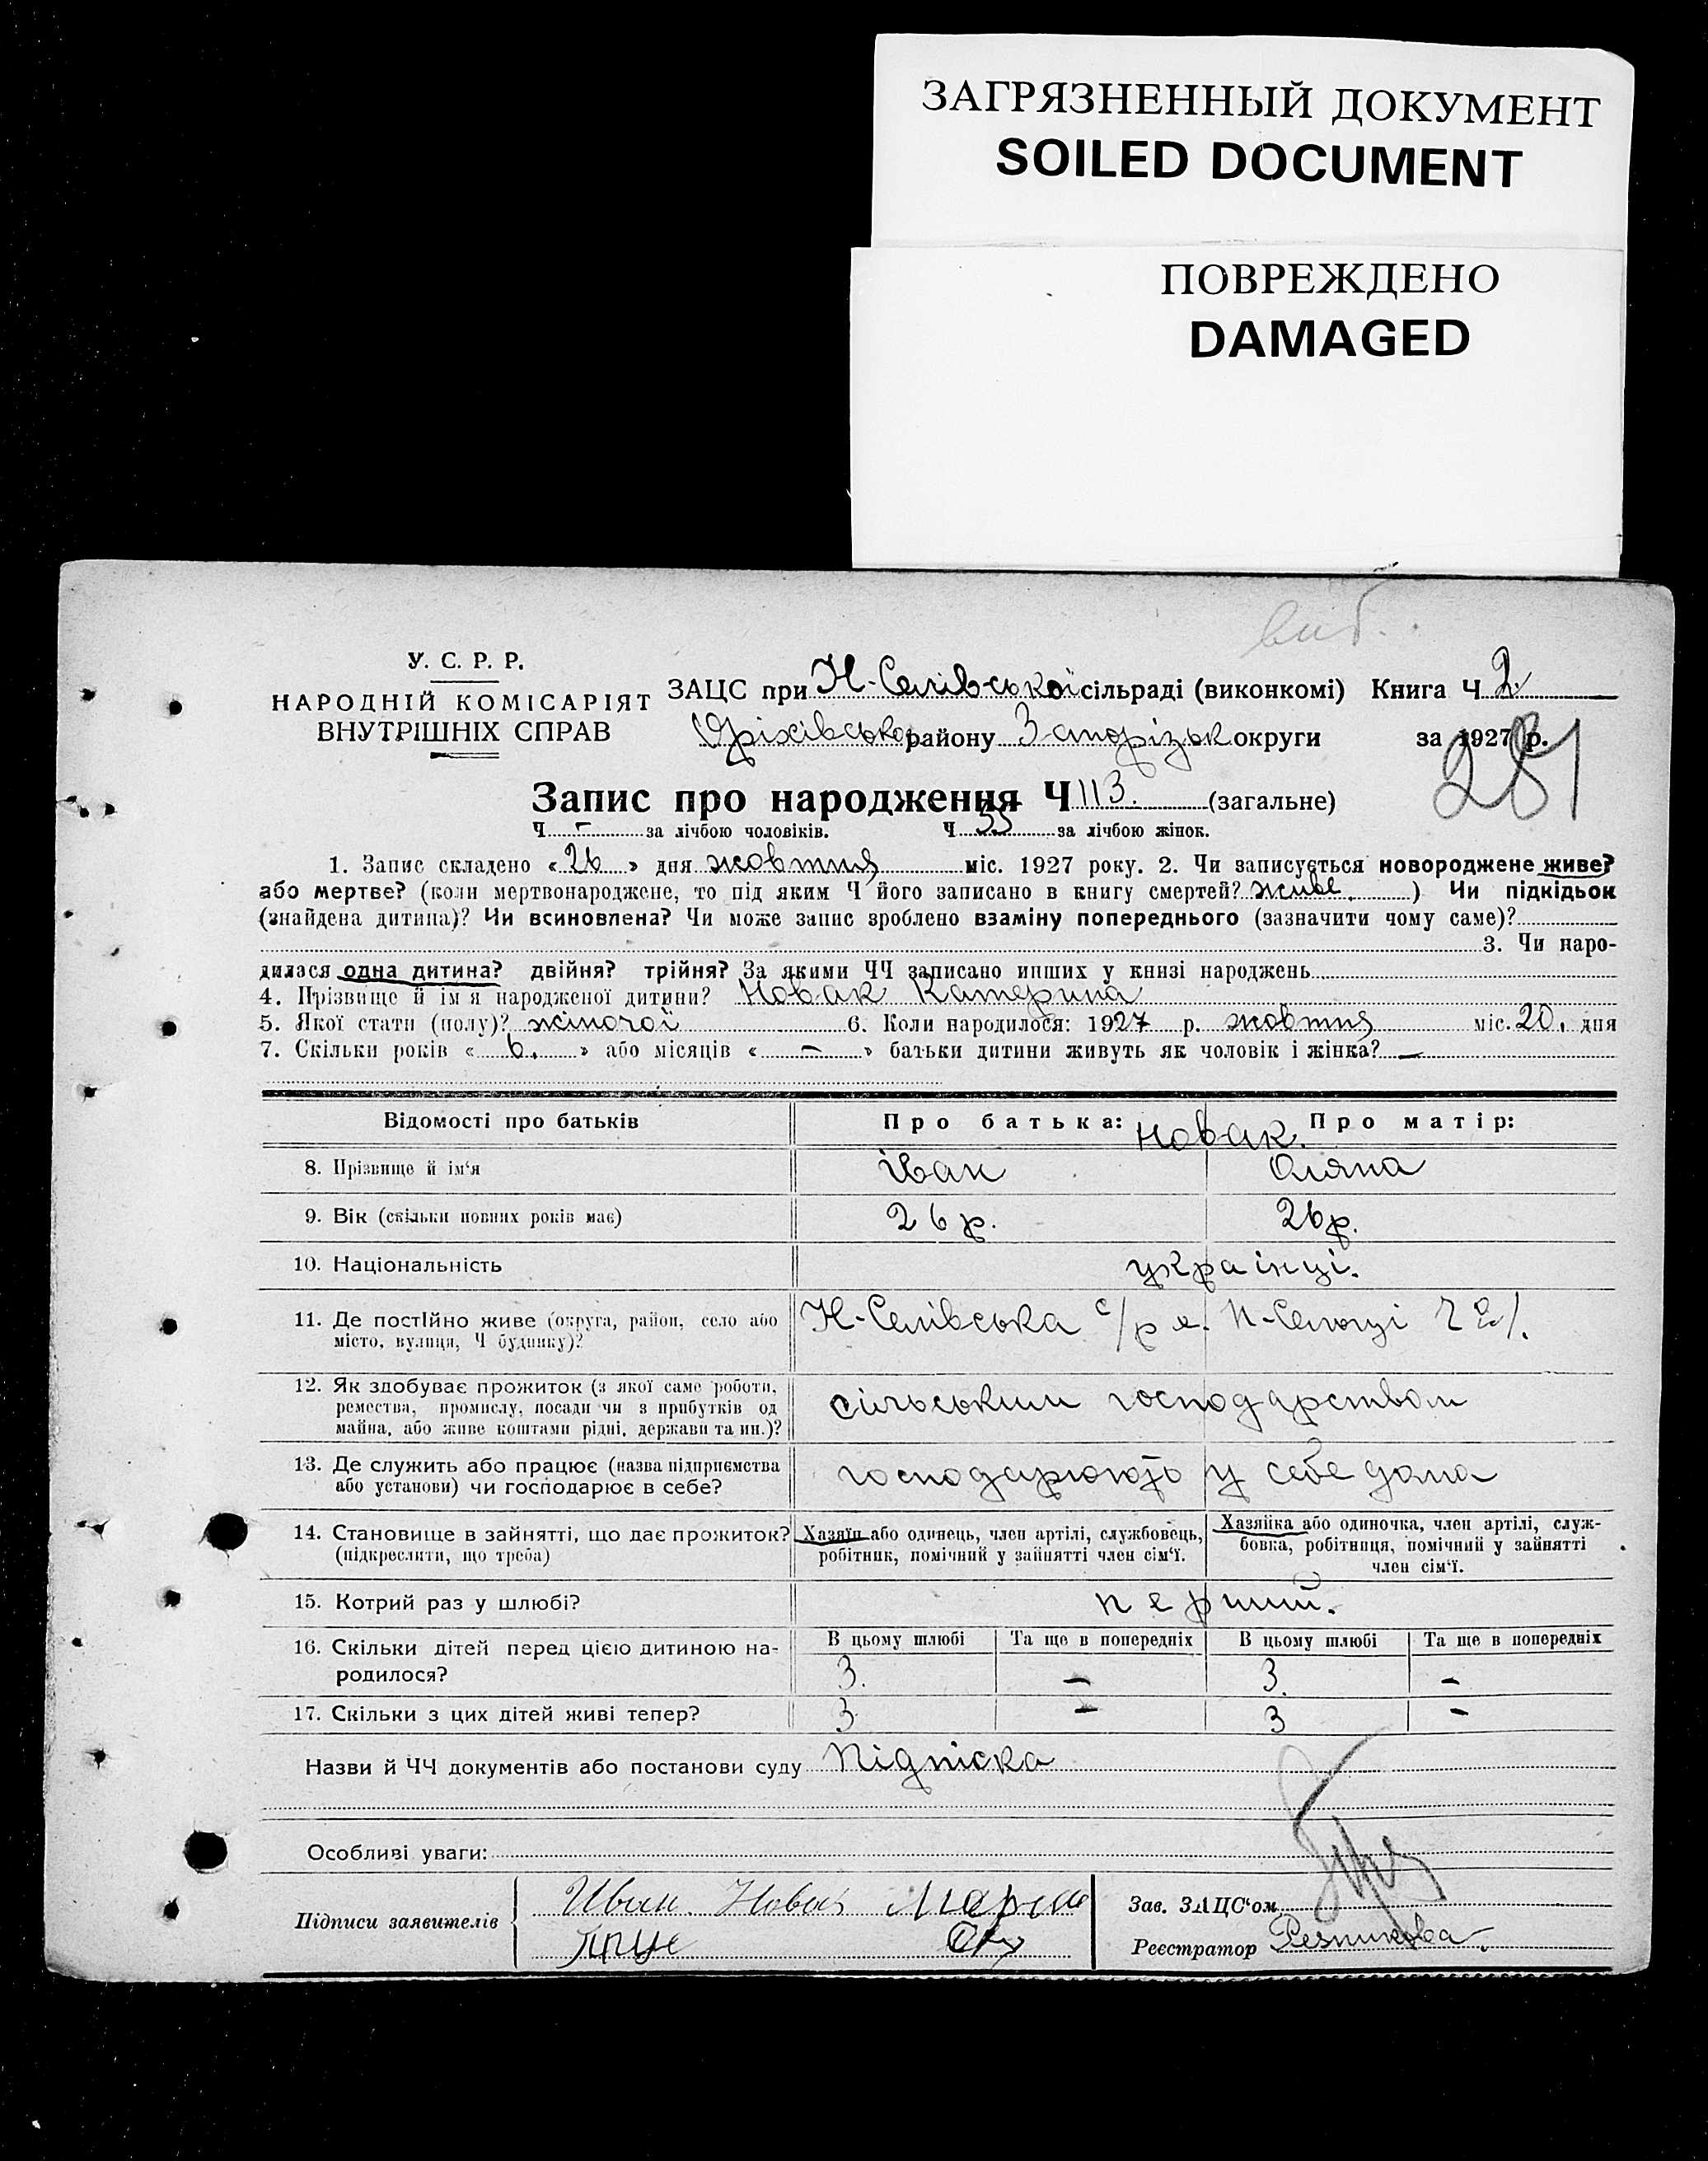 ЗАГРЯЗНЕННЫЙ ДОКУМЕНТ
SOILED DOCUMENT
ПОВРЕЖДЕНО
DAMAGED
вид.
У. С. Р. Р.
НАРОДНІЙ КОМІСАРІЯТ
ВНУТРІШНІХ СПРАВ
ЗАЦС при Н-Селівської сільраді (виконкомі) Книга Ч 2.
Оріхівської району Запорізьк округи за 1927 р.
281
Запис про народження Ч 113. (загальне)
Ч - за лічбою чоловіків. Ч 55 за лічбою жінок.
1. Запис складено « 26 » дня жовтня міс. 1927 року. 2. Чи записується новороджене живе?
або мертве? (коли мертвонароджене, то під яким Ч його записано в книгу смертей? живе. ) Чи підкідьок
(знайдена дитина)? Чи всиновлена? Чи може запис зроблено взаміну попереднього (зазначити чому саме)?
3. Чи наро-
дилася одна дитина? двійня? трійня? За якими ЧЧ записано инших у книзі народжень
4. Прізвище й ім'я народженої дитини? Новак Катерина
5. Якої стати (полу)? жіночої 6. Коли народилося: 1927 р. жовтня міс. 20. дня
7. Скільки років « 6. » або місяців « - » батьки дитини живуть як чоловік і жінка? -
Відомості про батьків Про батька: Новак. Про матір:
8. Прізвище й ім'я Іван Оляна
9. Вік (скільки повних років має) 26 р. 26 р.
10. Національність українці.
11. Де постійно живе (округа, район, село або
місто, вулиця, Ч будинку)? Н-Селівська с/р
12. Як здобуває прожиток (з якої саме роботи,
ремества, промислу, посади чи з прибутків од
майна, або живе коштами рідні, держави та ин.)? сільським господарством
13. Де служить або працює (назва підприємства
або установи) чи господарює в себе? господарюють у себе дома
14. Становище в зайнятті, що дає прожиток?
(підкреслити, що треба)
Хазяїн або одинець, член артілі, службовець,
робітник, помічний у зайнятті член сім'ї.
Хазяйка або одиночка, член артілі, служ-
бовка, робітниця, помічний у зайнятті
член сім'ї.
15. Котрий раз у шлюбі? перший.
В цьому шлюбі Та ще в попередніх В цьому шлюбі Та ще в попередніх
16. Скільки дітей перед цією дитиною на-
родилося? 3. - 3. -
17. Скільки з цих дітей живі тепер? 3 - 3 -
Назви й ЧЧ документів або постанови суду Підпіска
Особливі уваги:
Підписи заявителів Иван Новак
Зав. ЗАЦС'ом
Реєстратор Резникова.